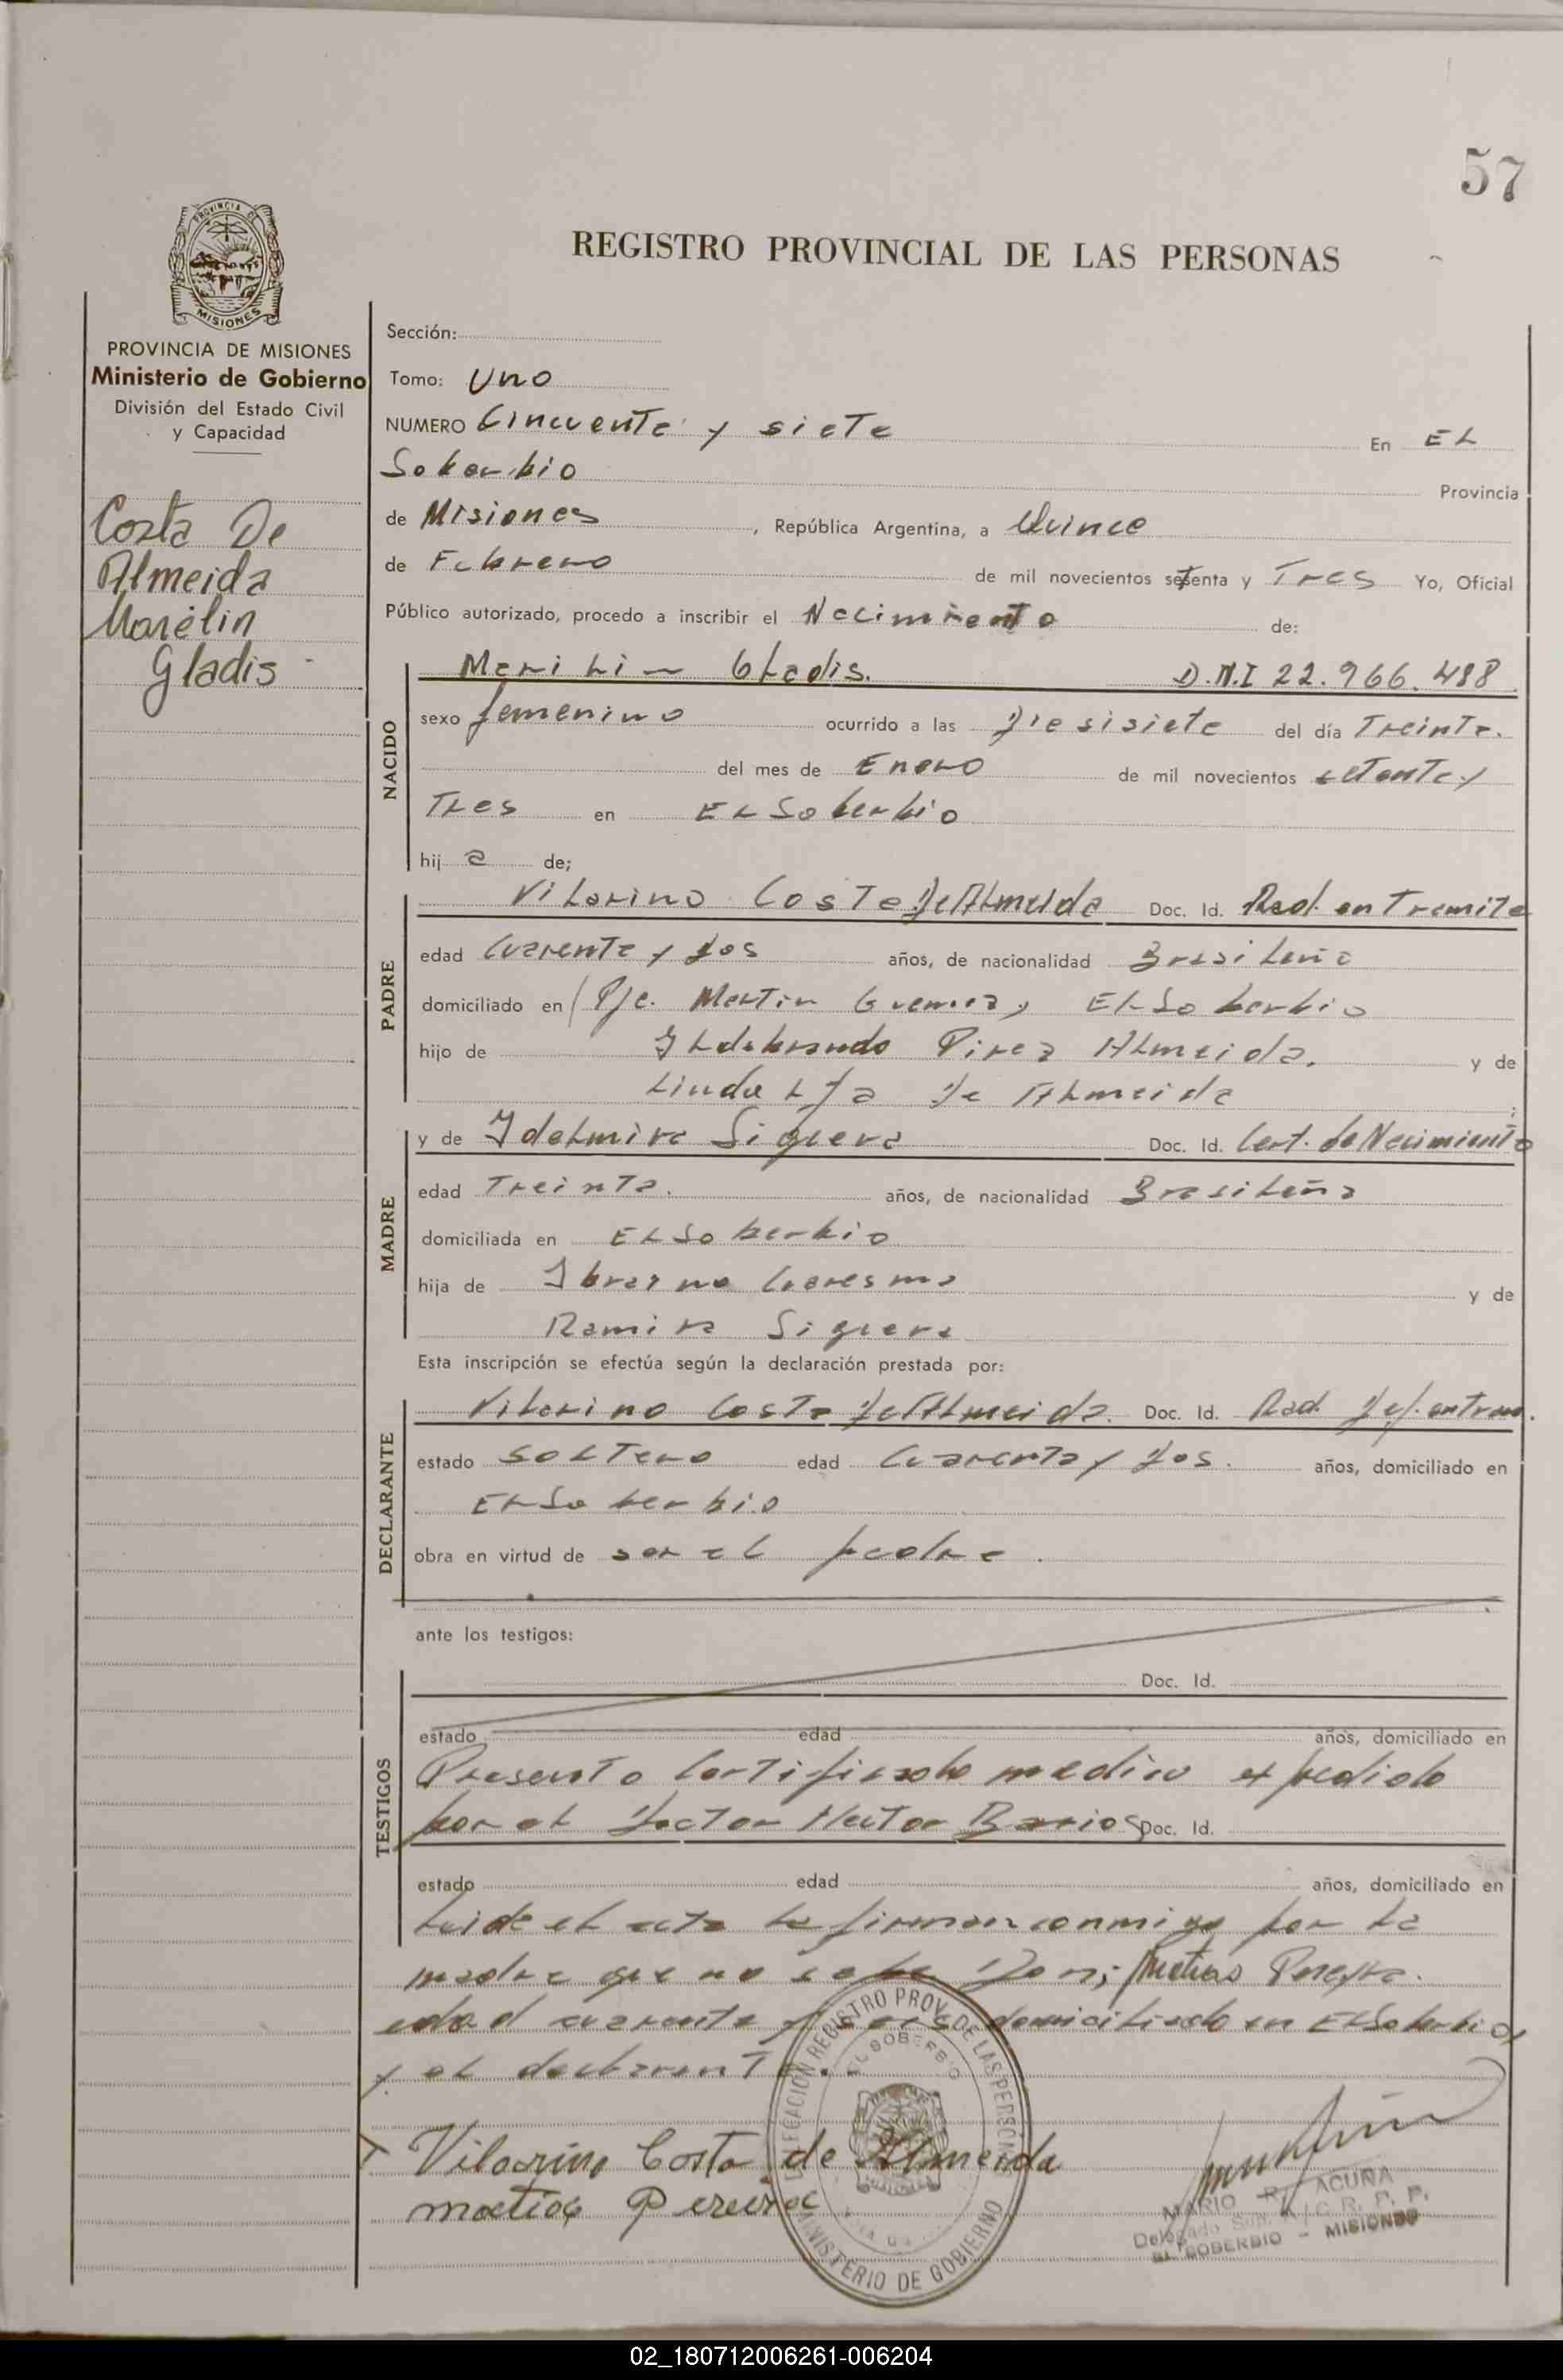 57
REGISTRO PROVINCIAL DE LAS PERSONAS
PROVINCIA DE MISIONES
Ministerio de Gobierno
División del Estado Civil
y Capacidad
Costa De
Almeida
Marelin
Gladis
Sección:
Tomo: Uno
NUMERO Cincuenta y siete En EL
Soberbio Provincia
de Misiones, República Argentina, a Quince
de Febrero de mil novecientos setenta y Tres Yo, Oficial
Público autorizado, procedo a inscribir el Nacimiento de:
NACIDO
Marilin Gladis. D.N.I 22.966.488
sexo femenino ocurrido a las Diesisiete del día Treinta.
del mes de Enero de mil novecientos setenta y
Tres en EL Soberbio
hij a de;
PADRE
Vitorino Costa De Almeida Doc. Id. Rad. en Tramite
edad Cuarenta y Dos años, de nacionalidad Brasileña
domiciliado en Pje. Martin Guemez, EL Soberbio
hijo de Ildebrando Pirez Almeida. y de
Linda de Almeida
MADRE
y de Idelmira Siquera Doc. Id. Cert. de Nacimiento
edad Treinta. años, de nacionalidad Brasileña
domiciliada en EL Soberbio
hija de Cuaresma y de
Ramira Siquera
Esta inscripción se efectúa según la declaración prestada por:
DECLARANTE
Vitorino Costa De Almeida. Doc. Id. Rad.
estado soltero edad Cuarenta y Dos. años, domiciliado en
EL Soberbio
obra en virtud de ser el padre.
ante los testigos:
TESTIGOS
Doc. Id.
estado edad años, domiciliado en
Presento Certificado medico expedido
por el Doctor Hector Barios Doc. Id.
estado edad años, domiciliado en
Leida el acta la firman conmigo por la
madre que no sabe Don; Matias Pereyra.
edad cuarenta domiciliado en EL Soberbio,
y el declarante.
Vilarino Costa de Almeida
matias Pereira
DELEGACION REGISTRO PROV. DE LAS PERSONAS
EL SOBERBIO
MINISTERIO DE GOBIERNO
MARIO R. ACUÑA
EL SOBERBIO - MISIONES
02_180712006261-006204